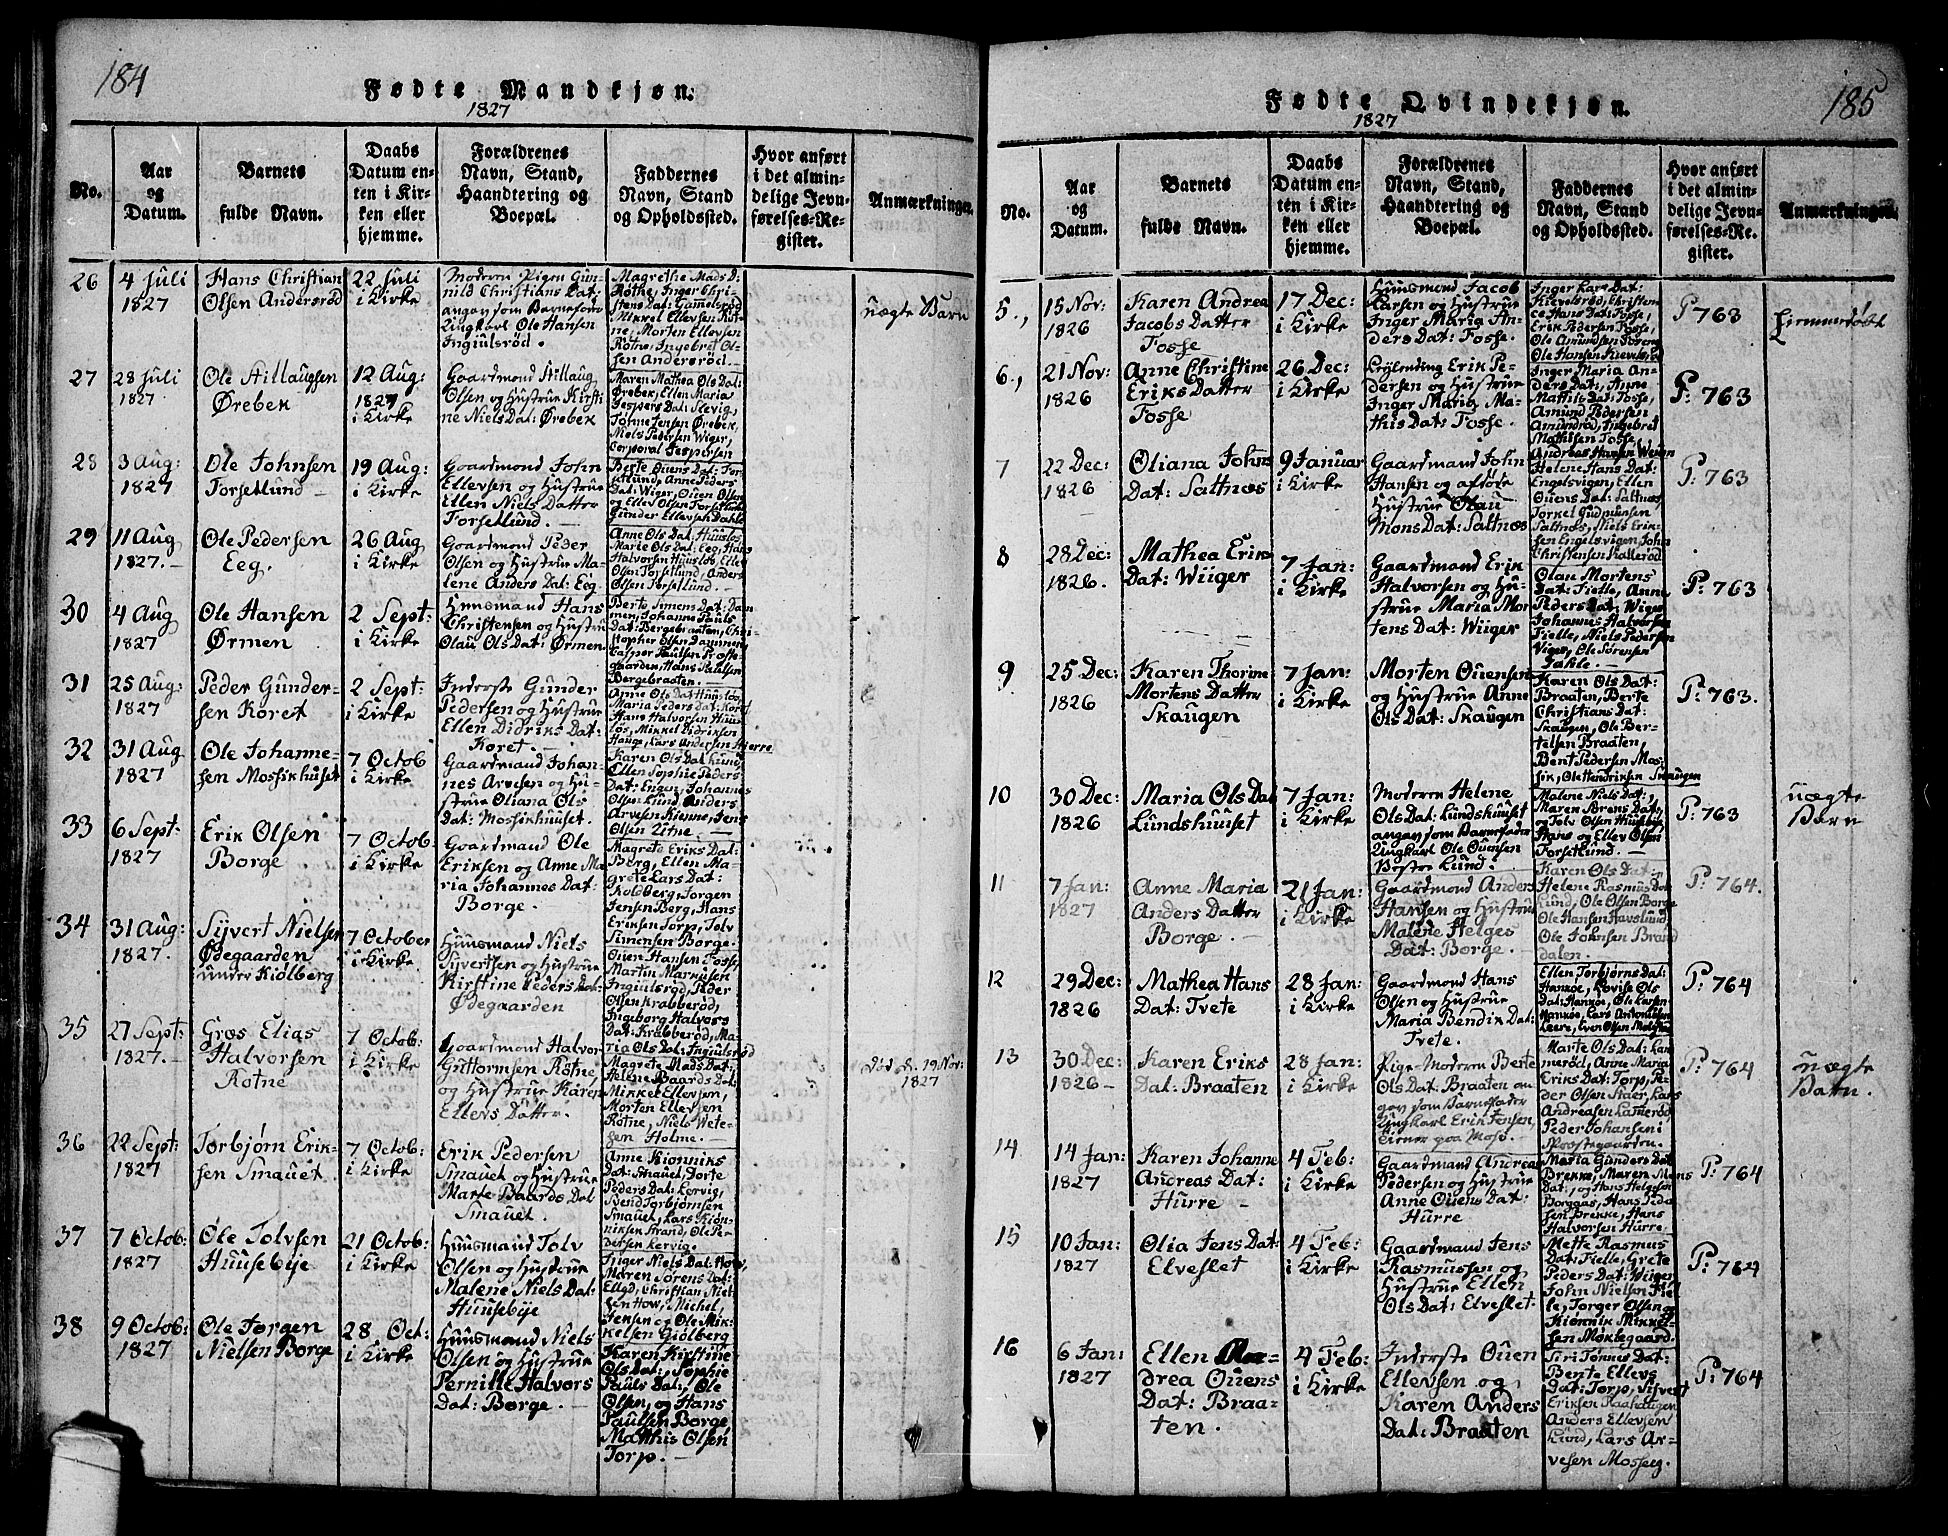 184
Fødte Mandkjøn.
1827
No.
Aar
og
Datum.
Barnets
fulde Navn.
Daabs
Datum en-
ten i Kir-
ken eller
hjemme.
Forældrenes
Navn, Stand,
Haandtering og
Boepæl.
Faddernes
Navn, Stand
og Opholdssted.
Hvor anført
i det almin-
delige Jevn-
førelses-Re-
gister.
Anmærkninger.
26
4 Juli
1827
Hans Christian
Olsen Andersrød
22 Juli
i Kirke
Moderen Pigen Gun-
nild Christians Dat:
angav som Barnefader
Ungkarl Ole Hansen
Ingiulsrød.
Magrethe Mads D:
Røthe, Inger Chri-
stens Dat: Gamelsrød
Mikkel Ellevsen Røt-
ne, Morten Ellevsen
Røtne, Ingebret Ol-
sen Andersrød.
uægte Barn
27
28 Juli
1827
Ole Hillaugsen
Ørebek
12 Aug:
1827
i Kirke
Gaardmond Hillaug
Olsen og Hustrue Kirsti-
ne Niels Dat: Ørebek
Maren Mathea Ols Dat:
Ørebek, Ellen Maria
Jespers Dat: Slevig,
Tønne Jensen Ørebek,
Niels Pedersen Wiger,
Corporal Jespersen
28
3 Aug:
1827
Ole Johnsen
Torsetlund
19 Aug:
i Kirke
Gaardmond John
Ellevsen og Hustrue
Ellen Niels Datter
Torsetlund.
Berte Ouens Dat: Tor-
setlund, Anne Peders
Dat: Wiger, Ouen Olsen
og Ellev Olsen Torsetlund
Gunder Ellevsen Dahle
29
11 Aug
1827.
Ole Pedersen
Eeg.
26 Aug
i Kirke
Gaardmond Peder
Olsen og Hustrue Ma-
lene Anders Dat: Eeg.
Anne Ols Dat: Huusløs
Marie Ols Dat: Eeg, Hans
Halvorsen Huusløs, Ellev
Olsen Torsetlund, Anders
Olsen Torsetlund.
30
4 Aug
1827
Ole Hansen
Ørmen
2 Sept:
i Kirke
Huusmand Hans
Christensen og Hustrue
Olau Ols Dat: Ørmen
Berte Simens Dat: Dam-
men, Johanne Pauls
Dat: Bergebraaten, Chri-
stopher Olsen Dammen,
Casper Paulsen Præste-
gaarden, Hans Paulsen
Bergebraaten.
31
25 Aug:
1827
Peder Gunder-
sen Koret
2 Sept:
i Kirke
Inderste Gunder
Pedersen og Hustrue
Ellen Didriks Dat:
Koret.
Anne Ols Dat Huusløs
Maria Peders Dat: Koret
Hans Halvorsen Huus-
løs, Mikkel Didriksen
Hauge, Lars Andersen Hierre
32
31 Aug
1827
Ole Johanne-
sen Mossikhuset
7 Octob
i Kirke
Gaardmand Johan-
nes Arvesen og Hu-
strue Oliana Ols
Dat: Mossikhuuset.
Karen Ols Dat Lund,
Ellen Sophie Peders
Dat: Engen, Johannes
Olsen Lund, Anders
Arvesen Kienne, Jens
Olsen Utne
33
6 Sept:
1827
Erik Olsen
Borge
7 Octob:
i Kirke
Gaardmand Ole
Eriksen og Anne Ma
ria Johannes Dat:
Borge.
Magrete Eriks Dat:
Borg, Ellen Ma-
grete Lars Dat:
Kolberg, Jørgen
Jensen Berg, Hans
Eriksen Torp, Tolv
Simensen Borge.
34
31 Aug:
1827.
Sijvert Nielsen
Ødegaarden
under Kiølberg
7 October
i Kirke
Huusmand Niels
Sijvertsen og Hustrue
Kirstine Peders Dat:
Ødegaarden
Ouen Hansen Fosse,
Martin Markusen
Ingiulsrød, Peder
Olsen Krabberød,
Ingeborg Halvors
Dat: Krabberød, Ma-
ria Ols Dat: Ingiulsrød
35
27 Sept:
1827.
Gros Elias
Halvorsen
Rotne
7 Octob:
i Kirke
Gaardmond Halvor
Guttormsen Rotne,
og Hustrue Karen
Ellevs Datter.
Magrete Mads Dat:
Helene Baards Dat:
Mikkel Ellevsen,
Morten Ellevsen
Rotne, Niels Wete-
sen Holme.
Død d. 19 Nov:
1827
36
22 Sept:
1827
Torbjørn Erik-
sen Smauet
7 Octob:
i Kirke
Erik Pedersen
Smauet og Hustrue
Marte Baards Dat
Smauet.
Anne Kionniks
Dat: Smauet, Dorte
Peders Dat: Lervig,
Svend Torbjørnsen
Smauet, Lars Kiøn-
niksen Strand, Ole Pe-
dersen Lervig.
37
7 Octob:
1827
Ole Tolvsen
Huusebÿe
21 Octob:
i Kirke
Huusmand Tolv
Olsen og Hustrue
Malene Niels Dat:
Huusebÿe
Inger Niels Dat: How,
Maren Sørens Dat:
Ellød, Christian Niel-
sen How, Michel
Jensen og Ole Mik-
kelsen Giølberg
38
9 Octob:
1827
Ole Jørgen
Nielsen Borge
28 Oct:
i Kirke
Huusmond Niels
Olsen og Hustrue
Pernille Halvors
Dat: Borge
Karen Kirstine
Ols Dat:, Sophie
Pauls Dat:, Ole
Olsen, og Hans
Paulsen Borge
Mathis Olsen
Torp.
185
Fødte Qvindekjøn.
1827
No.
Aar
og
Datum.
Barnets
fulde Navn.
Daabs
Datum en-
ten i Kir-
ken eller
hjemme.
Forældrenes
Navn, Stand,
Haandtering og
Boepæl.
Faddernes
Navn, Stand
og Opholdssted.
Hvor anført
i det almin-
delige Jevn-
førelses-Re-
gister.
Anmærkninger.
5.,
15 Nov:
1826
Karen Andrea
Jacobs Datter
Fosse
17 Dec:
i Kirke
Huusmond Jacob
Larsen og Hustrue
Inger Maria An-
ders Dat: Fosse.
Inger Lars Dat:
Kievelsrød, Christen
ce Hans Dat: Fosse,
Erik Pedersen Fosse,
Ole Amundsen
Ole Hansen Kievelsrød
P: 763
Hiemmedøbt
6.,
21 Nov:
1826
Anne Christine
Eriks Datter
Fosse
26 Dec:
i Kirke
Leÿlending Erik Pe-
dersen og Hustrue
Inger Maria Ma-
this Dat: Fosse.
Inger Maria An-
ders Dat:, Anne
Mathis Dat: Fosse,
Amund Pedersen
Amundrød, Ingebret
Mathisen Fosse,
P: 763
7
22 Dec:
1826
Oliana Johns
Dat: Saltnøs
9 Januar
i Kirke
Gaardmand John
Hansen og afløde
Hustrue Olau
Mons Dat: Saltnøs
Andreas Hansen Weigen
Helene Hans Dat:
Engelsvigen, Ellen
Ouens Dat: Saltnøs
Torkel Gudmunsen
Saltnøs, Niels Erik-
sen Engelsvigen, John
Christensen Kallerød
P: 763
8
28 Dec:
1826.
Mathea Eriks
Dat: Wiiger
7 Jan:
i Kirke
Gaardmand Erik
Halvorsen og Hu-
strue Maria Mor
tens Dat: Wiiger
Olau Mortens
Dat: Fielle, Anne
Peders Dat: Wiger
Johannes Halvorsen
Fielle, Niels Pedersen
Viger, Ole Sørensen
Dahle.
P: 763
9
25 Dec:
1826
Karen Thorine
Mortens Datter
Skaugen
7 Jan:
i Kirke
Morten Ouensen
og Hustrue Anne
Ols Dat: Skaugen
Karen Ols Dat:
Braaten, Berte
Christians Dat:
Skaugen, Ole Ber-
telsen Braaten,
Bent Pedersen Mos-
sik, Ole Hendriksen Skaugen
P: 763.
10
30 Dec:
1826
Maria Ols Dat
Lundshuuset
7 Jan:
i Kirke
Moderen Helene
Ols Dat: Lundshuuset
angav som Barnefader
Ungkarl Ole Ouensen
Bøster Lund.
Malene Niels Dat:,
Maren Brens Dat,
og Tolv Olsen Huusebÿe
Hans og Ellev Olsen
Torsetlund.
P: 763
uægte
Barn
11
7 Jan:
1827
Anne Maria
Anders Datter
Borge
21 Jan:
i Kirke
Gaardmond Anders
Hansen og Hustrue
Malene Helges
Dat: Borge.
Karen Ols Dat:
Helene Rasmus Dat
Lund, Ole Olsen Borge
Ole Hansen Havslund
Ole Johnsen Brand
dalen.
P: 764.
12
29 Dec:
1826
Mathea Hans
Dat: Tvete
28 Jan:
i Kirke
Gaardmond Hans
Olsen og Hustrue
Maria Bendik Dat:
Tvete.
Ellen Torbjørns Dat:
Hankøe, Lovise Ols
Dat: Hankøe, Ole Larsen
Hankøe, Lars Antonisen
Leere, Even Olsen
P: 764
13
30 Dec:
1826
Karen Eriks
Dat: Braaten
28 Jan:
i Kirke
Pige Moderen Berte
Ols Dat: Braaten an
gav som Barnefader
Ungkarl Erik Jensen,
tiener paa Moss.
Marte Ols Dat: Lam
merød, Anne Maria
Eriks Dat: Torp, Pe-
der Olsen Staer, Lars
Andreasen Lamerød,
Peder Johansen i
Præstegaarden.
P: 764
uægte
Barn.
14
14 Jan:
1827
Karen Johanne
Andreas Dat:
Hurre
4 Feb:
i Kirke
Gaardmond Andreas
Pedersen og Hustrue
Anne Ouens Dat:
Hurre
Maria Gunders Dat
Brekke, Maren Mons
Dat, og Hans Helgesen
Borgaas, Hans Peder
sen Brekke, Hans
Halvorsen Hurre,
P: 764
15
10 Jan:
1827
Olia Jens Dat:
Elveslet
4 Feb:
i Kirke
Gaardmand Jens
Rasmussen og
Hustrue Ellen
Ols Dat: Elveslet.
Mette Rasmus
Dat: Fielle, Grete
Peders Dat: Wiiger
John Nielsen Fie-
le, Torger Olsen og
Kiønnik Mikkel-
sen Møklegaard
P: 764
16
6 Jan:
1827
Ellen An-
drea Ouens
Dat: Braa-
ten.
4 Feb:
i Kirke
Inderste Ouen
Ellevsen og
Karen Anders
Dat: Braaten
Siri Tønnes Dat:
Bente Ellevs
Dat: Torp, Sijvert
Eriksen Raahaugen
Anders Ellevsen
Lund, Lars Ar-
vesen Mosseeg.
P: 764